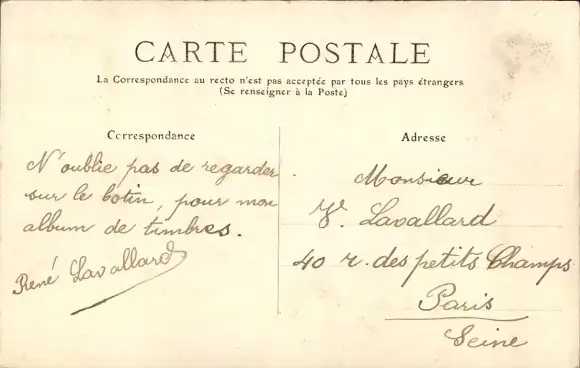 CARTE POSTALE
La Correspondance au recto n'est pas acceptée par tous les pays étrangers
(Se renseigner à la Poste)
Correspondance
N'oublie pas de regarder
sur le botin, pour mon
album de timbres.
René Lavallard
Adresse
Monsieur
V. Lavallard
40 r. des petits Champs
Paris
Seine